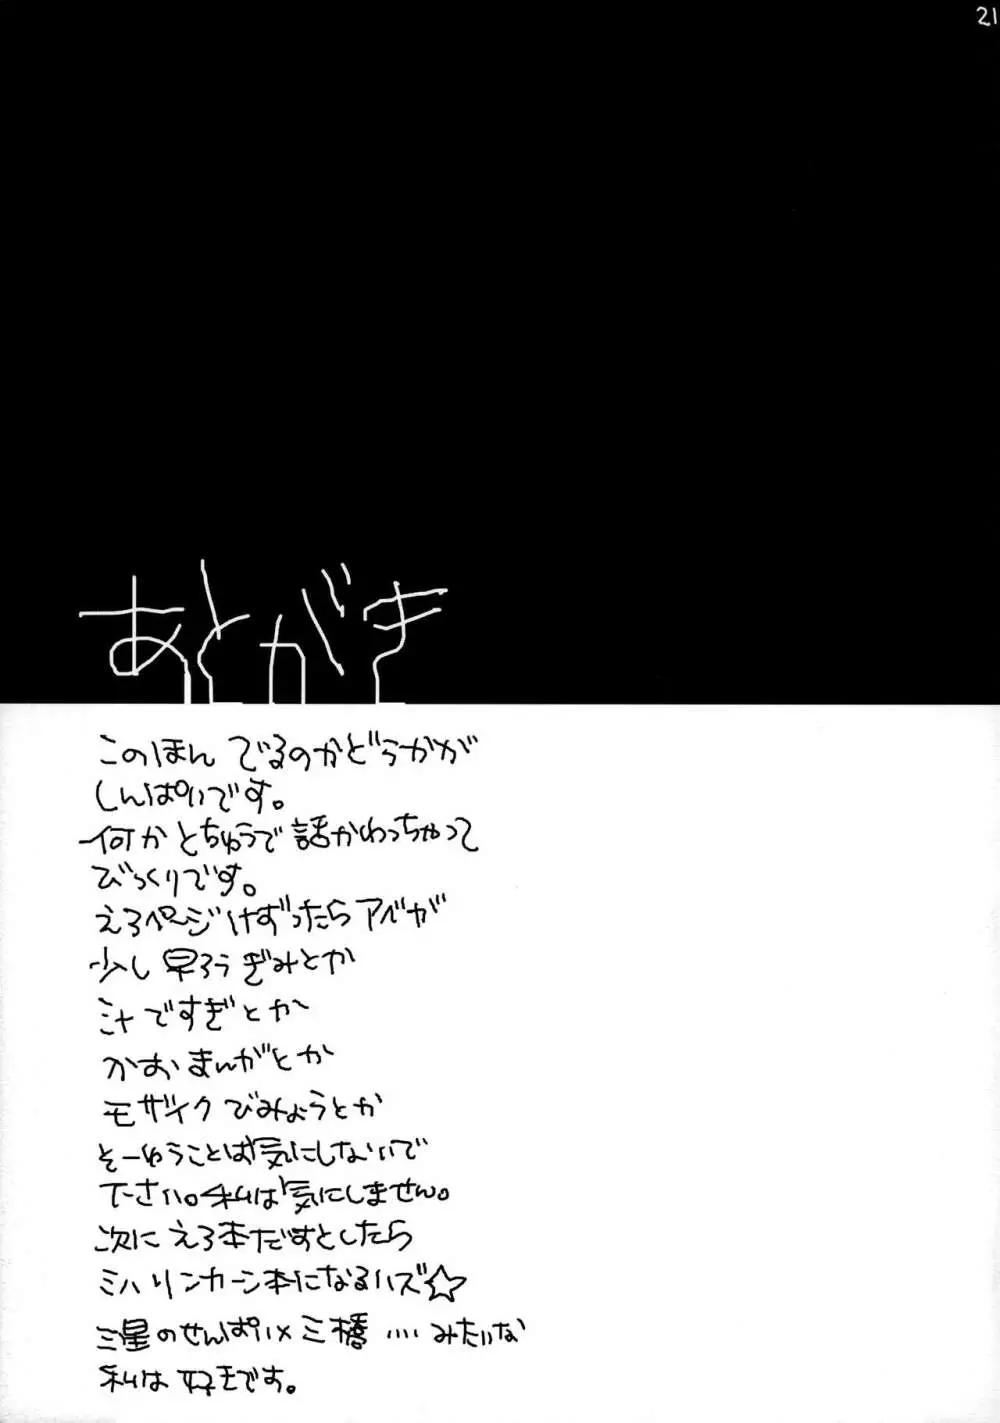 21
あとがき
このほん でるのかどうかが
しんぱいです。
何か とちゅうで 話かわっちゃって
びっくりです。
えろページけずったらアベが
少し 早ろう ぎみとか
汁ですぎとか
かおまんがとか
モザイク びみょうとか
そーゆうことは気にしないで
下さい。私は気にしません。
次に えろ本だすとしたら
ミハリンカーン本になるハズ☆
三星のせんぱい×三橋 ‥‥みたいな
私は 好きです。